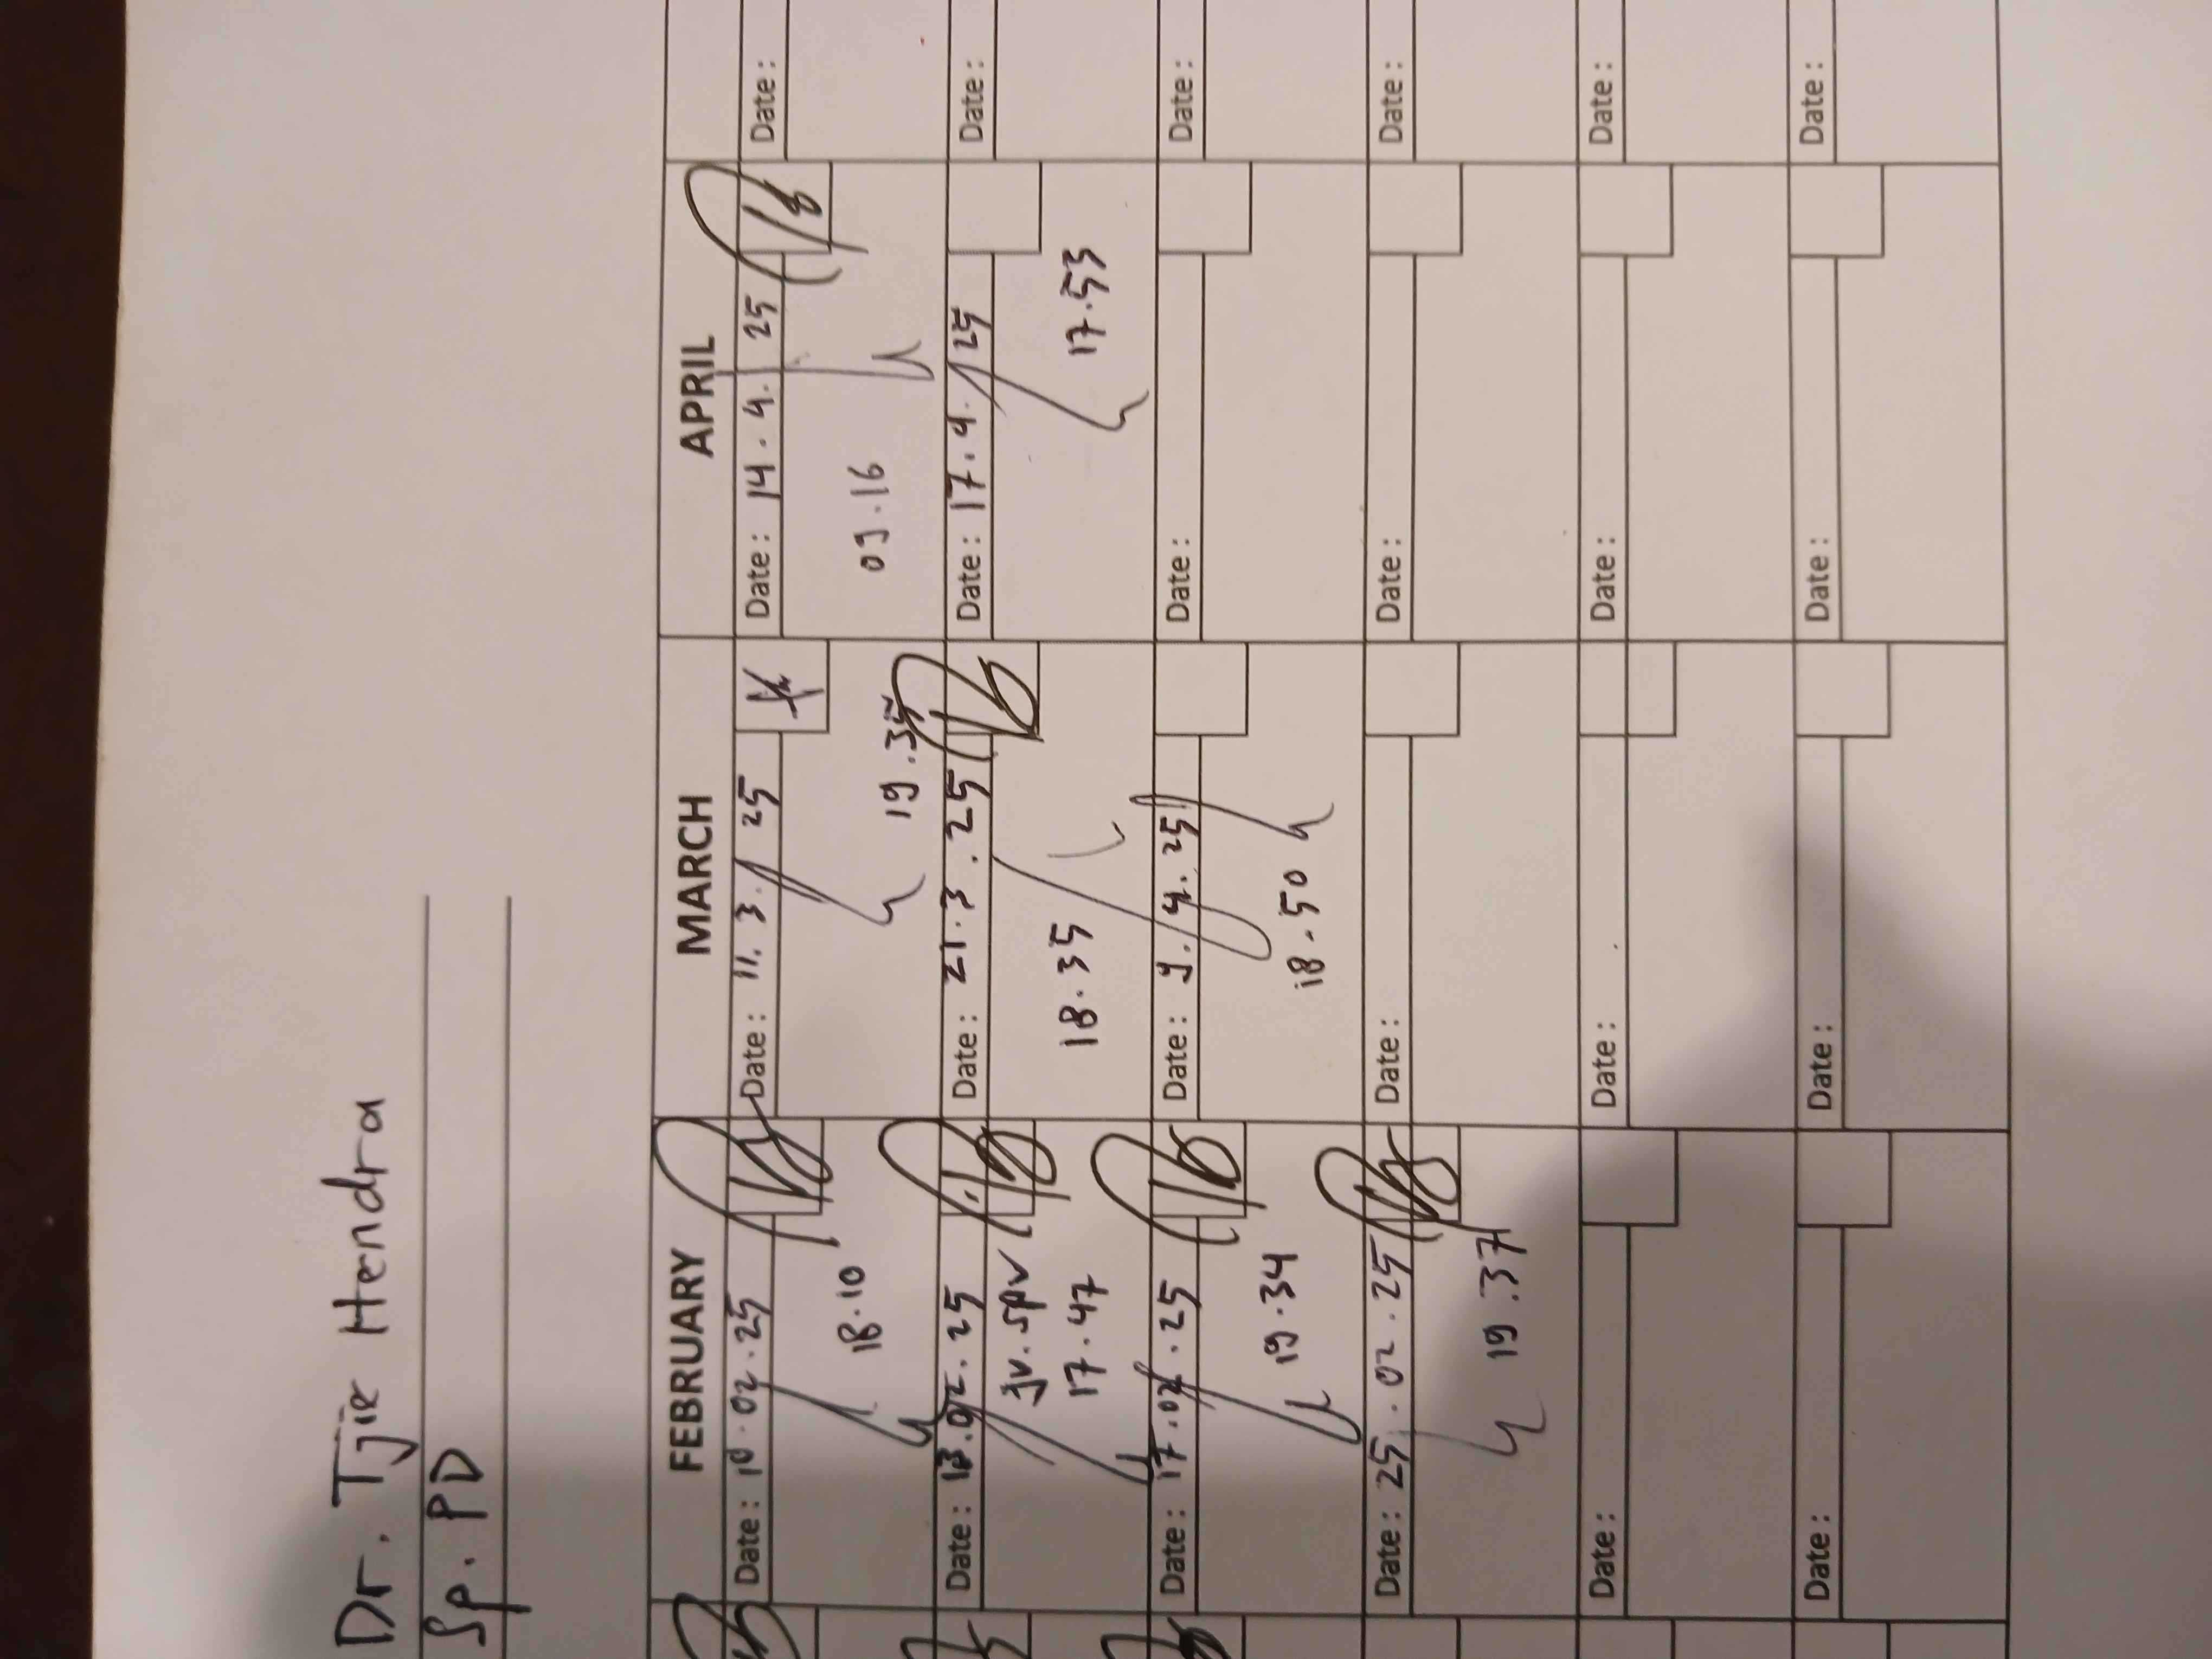 Dr. Tjie Hendra
Sp. PD
FEBRUARY MARCH APRIL
Date: 10.02.25 Date: 11.3. 25 Date: 14.4. 25 Date:
18.10 19.35 09.16
Date: 13.02.25 Date: 21.3.25 Date: 17.4. 25 Date:
jv.spv
17.47 18.35 17.53
Date: 17.02.25 Date: 9.4.25 Date: Date:
19.34 18.50
Date: 25.02.25 Date: Date: Date:
19.37
Date: Date: Date: Date:
Date: Date: Date: Date: